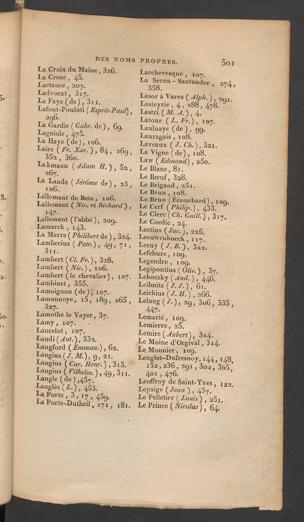 DES NOMS PROPRES. 501
La Croix du Maine, 326.
La Croze, 45.
Lactance, 207.
Ladvocat, 317.
La Faye (de), 311.
Lafont-Pouloti (Esprit-Paul),
296.
La Gardie (Gabr. de), 69.
Lagniole, 475.
La Haye (de), 106.
Laire (Fr. Xav.), 84, 269,
352, 360.
Lakmann (Adam H.), 52,
267.
La Lande (Jérôme de), 23,
106.
Lallemant de Betz, 106.
Lallemant (Nic. et Richard),
147.
Lallemant (l'abbé), 209.
Lamarck, 143.
La Marre (Philibert de), 324.
Lambecius (Petr.), 49, 71,
311.
Lambert (Cl. Fr.), 328.
Lambert (Nic.), 106.
Lambert (le chevalier), 107.
Lambinet, 355.
Lamoignon (de), 107.
Lamonnoye, 15, 189, 265,
327.
Lamothe le Vayer, 37.
Lamy, 107.
Lancelot, 107.
Landi (Ant.), 332.
Langford (Emman.), 62.
Langius (J. M.), 9, 21.
Langius (Car. Henr.), 313.
Langius (Vilhelm.), 49, 311.
Langle (de), 457.
Langlès (L.), 453.
La Porte, 3, 17, 459.
La Porte-Dutheil, 171, 181.
Larchevesque, 107.
La Serna-Santander, 274,
358.
Lasor à Varea (Alph.), 291.
Lasteyrie, 4, 288, 478.
Lastri (M. A.), 4.
Latour (L. Fr.), 107.
Laulnaye (de), 99.
Lauragais, 108.
Laveaux (J. Ch.), 321.
La Vigne (de), 108.
Law (Edmond), 250.
Le Blanc, 81.
Le Bœuf, 328.
Le Brigand, 251.
Le Brun, 108.
Le Brun (Ecouchard), 109.
Le Cerf (Philip.), 433.
Le Clerc (Ch. Guill.), 317.
Le Coedic, 24.
Lectius (Jac.), 225.
Leeuwenhoeck, 117.
Lecuy (J. B.), 322.
Lefebure, 109.
Legendre, 109.
Legipontius (Oliv.), 37.
Lehoczky (And.), 446.
Leibnitz (J. J.), 61.
Leichius (J. H.), 266.
Lelong (J.), 29, 306, 335,
447.
Lemarié, 109.
Lemierre, 25.
Lemire (Aubert), 324.
Le Moine d'Orgival, 314.
Le Monnier, 109.
Lenglet-Dufresnoy, 144, 148,
152, 236, 291, 302, 305,
401, 476.
Leoffroy de Saint-Yves, 122.
Lepaige (Jean), 437.
Le Pelletier (Louis), 251.
Le Prince (Nicolas), 64.